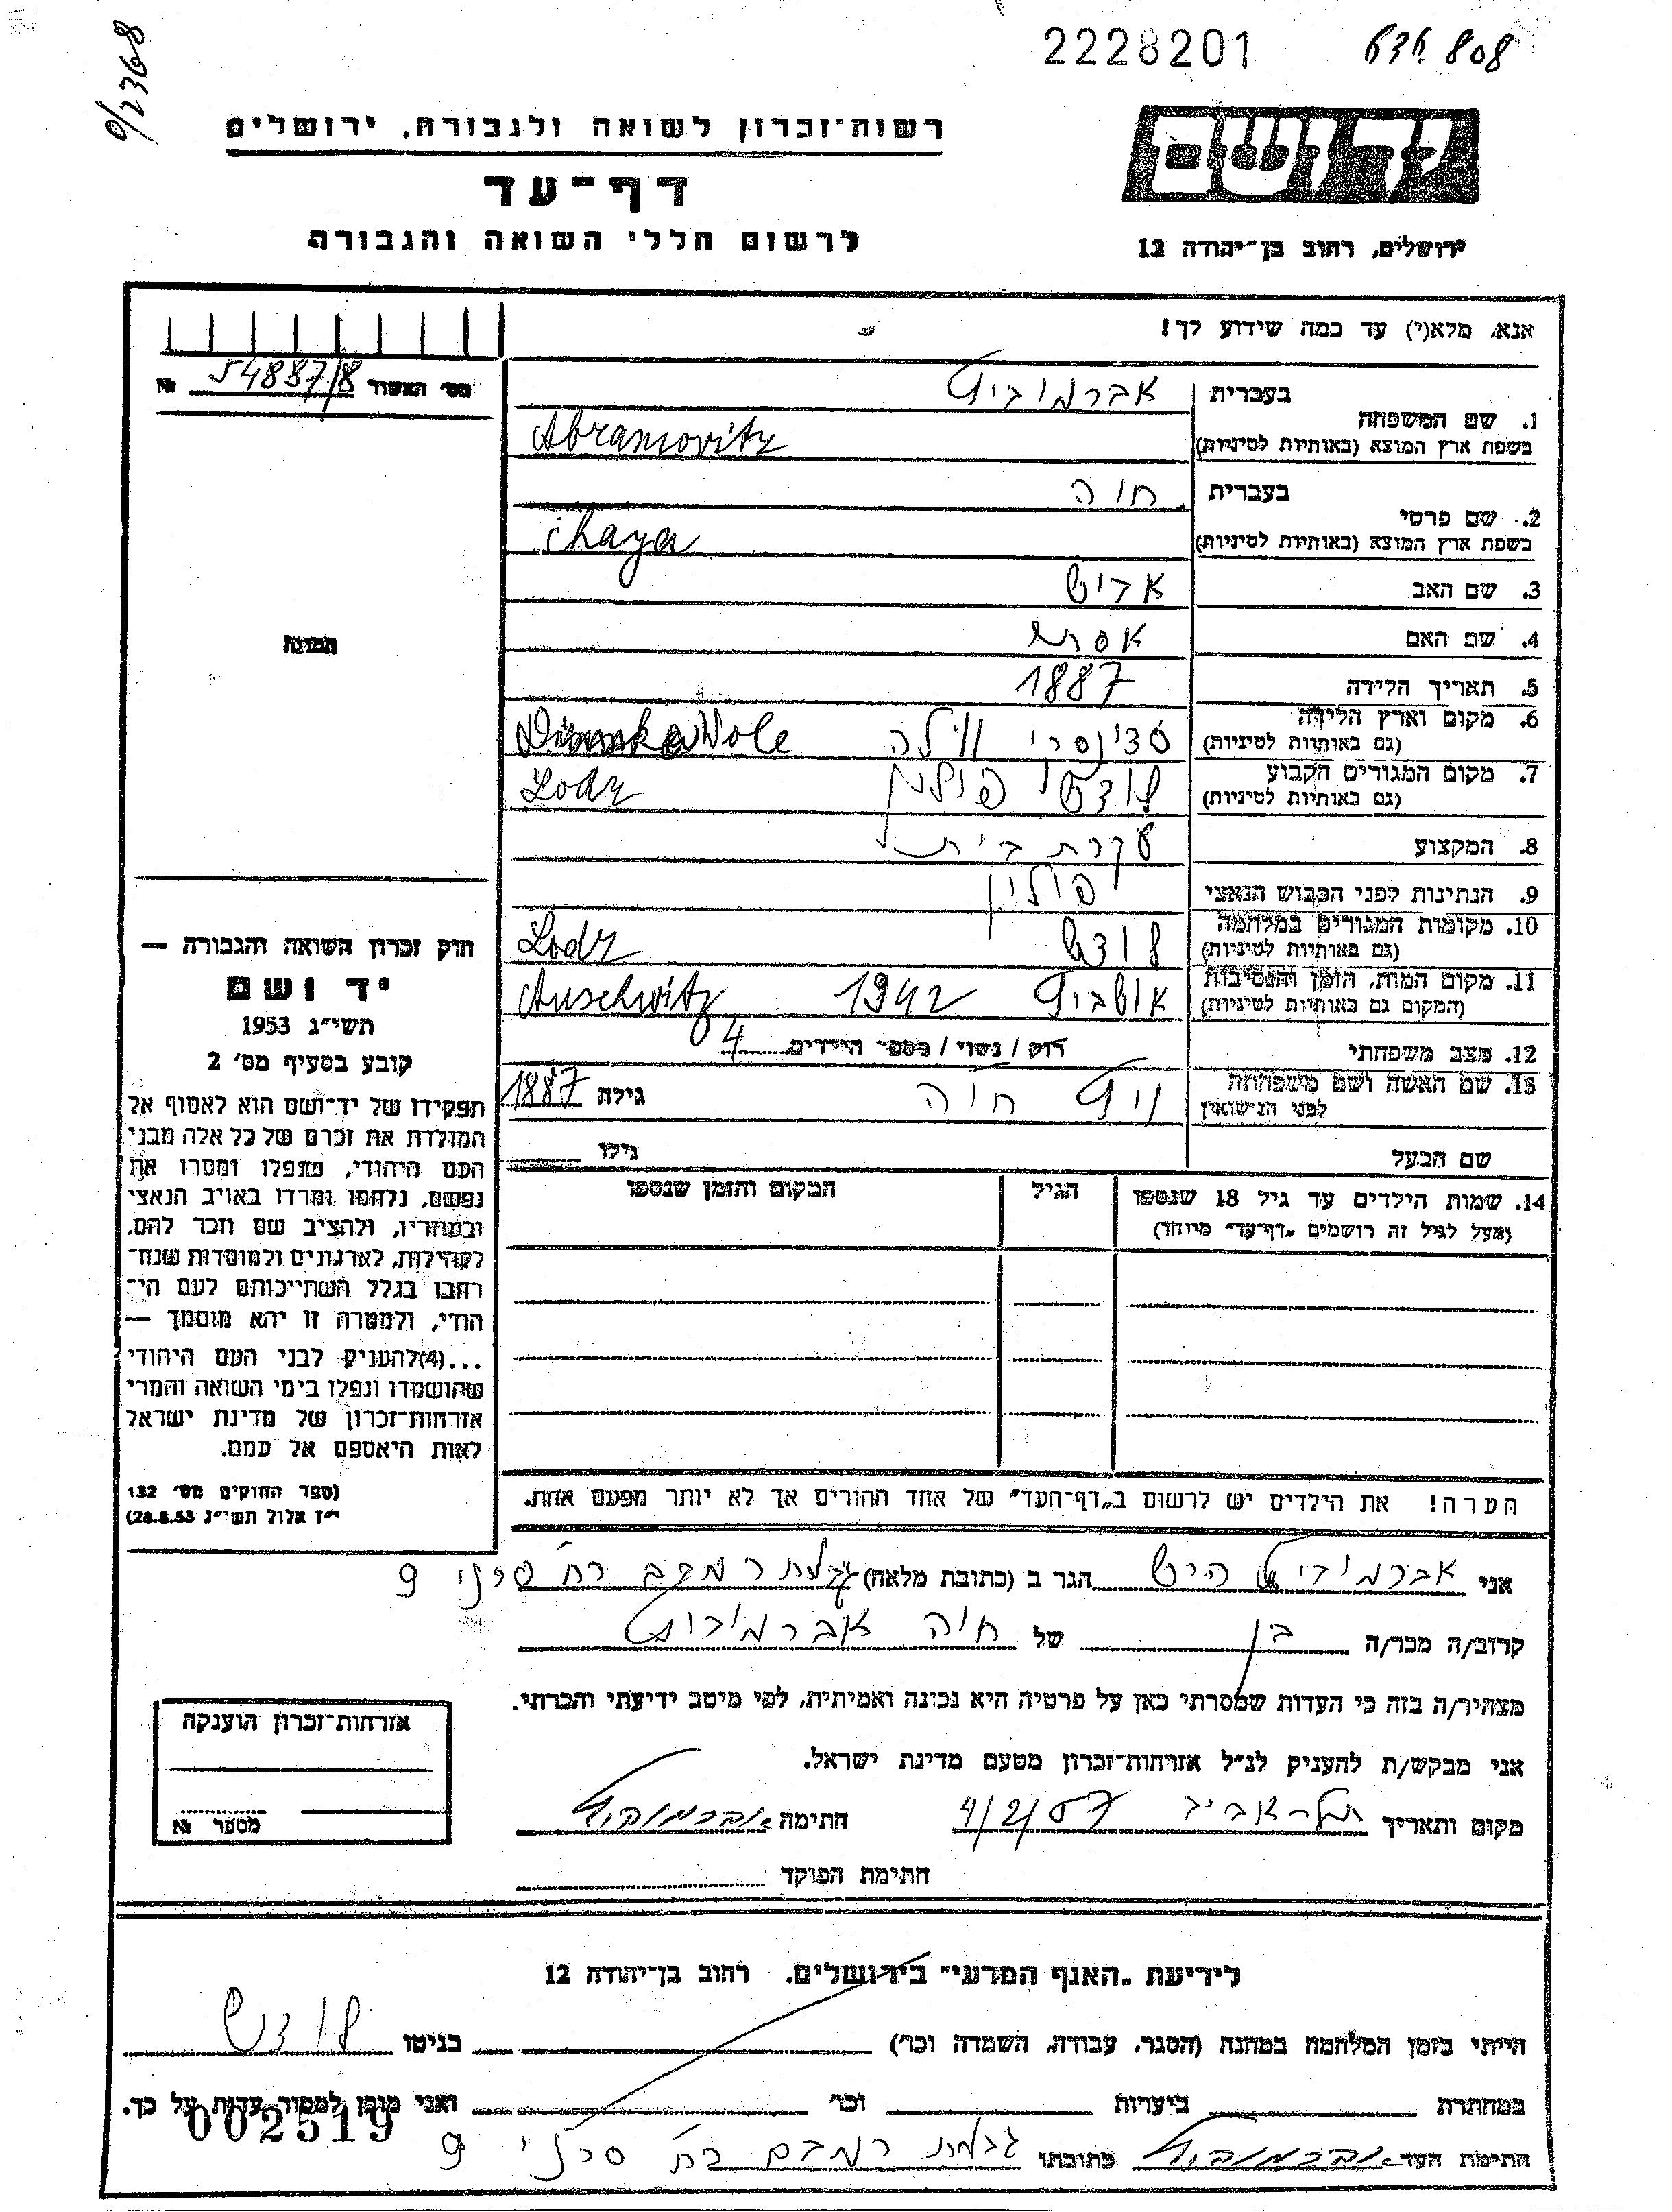 2228201
808
0/2368
רשות־זכרון לשואה ולגבורה, ירושלים
יד ושם
דף־עד
לרשום חללי השואה והגבורה
ירושלים, רחוב בן־יהודה 12
אנא, מלא(י) עד כמה שידוע לך!
מס׳ האשור 54887/8 №
בעברית אברמוביץ
1. שם המשפחה
בשפת ארץ המוצא (באותיות לטיניות) Abramovitz
בעברית חיה
2. שם פרטי
בשפת ארץ המוצא (באותיות לטיניות) Chaya
3. שם האב
4. שם האם אסתר
5. תאריך הלידה 1887
6. מקום וארץ הלידה
(גם באותיות לטיניות) Wole
7. מקום המגורים הקבוע לודז׳ פולין Lodz
(גם באותיות לטיניות)
8. המקצוע עקרת בית
9. הנתינות לפני הכבוש הנאצי פולין
10. מקומות המגורים במלחמה לודז Lodz
(גם באותיות לטיניות)
11. מקום המות, הזמן והנסיבות אושביץ 1942 Auschwitz
(המקום גם באותיות לטיניות)
12. מצב משפחתי רוק / נשוי / מספר הילדים 4
13. שם האשה ושם משפחתה חיה גילה 1887
לפני הנישואין
שם הבעל גילו
14. שמות הילדים עד גיל 18 שנספו הגיל המקום והזמן שנספו
(מעל לגיל זה רושמים „דף־עד״ מיוחד)
הערה! את הילדים יש לרשום ב„דף־העד״ של אחד ההורים אך לא יותר מפעם אחת.
תמונה
חוק זכרון השואה והגבורה —
יד ושם
תשי״ג 1953
קובע בסעיף מס׳ 2
תפקידו של יד־ושם הוא לאסוף אל
המולדת את זכרם של כל אלה מבני
העם היהודי, שנפלו ומסרו את
נפשם, נלחמו ומרדו באויב הנאצי
ובעוזריו, ולהציב שם וזכר להם,
לקהילות, לארגונים ולמוסדות שנח־
רבו בגלל השתייכותם לעם הי־
הודי, ולמטרה זו יהא מוסמך —
...(4)להעניק לבני העם היהודי
שהושמדו ונפלו בימי השואה והמרי
אזרחות־זכרון של מדינת ישראל
לאות היאספם אל עמם.
(ספר החוקים מס׳ 132
י״ז אלול תשי״ג 28.8.53)
אני אברמוביץ הירש הגר ב (כתובת מלאה) רח׳ 9
קרוב/ה מכר/ה בן של חיה אברמוביץ
מצהיר/ה בזה כי העדות שמסרתי כאן על פרטיה היא נכונה ואמיתית, לפי מיטב ידיעתי והכרתי.
אני מבקש/ת להעניק לנ״ל אזרחות־זכרון מטעם מדינת ישראל.
מקום ותאריך תל־אביב 4/2/57 חתימה אברמוביץ
חתימת הפוקד
אזרחות־זכרון הוענקה
מספר №
לידיעת „האגף המדעי״ בירושלים, רחוב בן־יהודה 12
הייתי בזמן המלחמה במחנה (הסגר, עבודה, השמדה וכו׳) בגיטו לודז
במחתרת ביערות וכו׳ ואני מוכן למסור עדות על כך.
002519
חתימת העד אברמוביץ כתובתו רח׳ 9